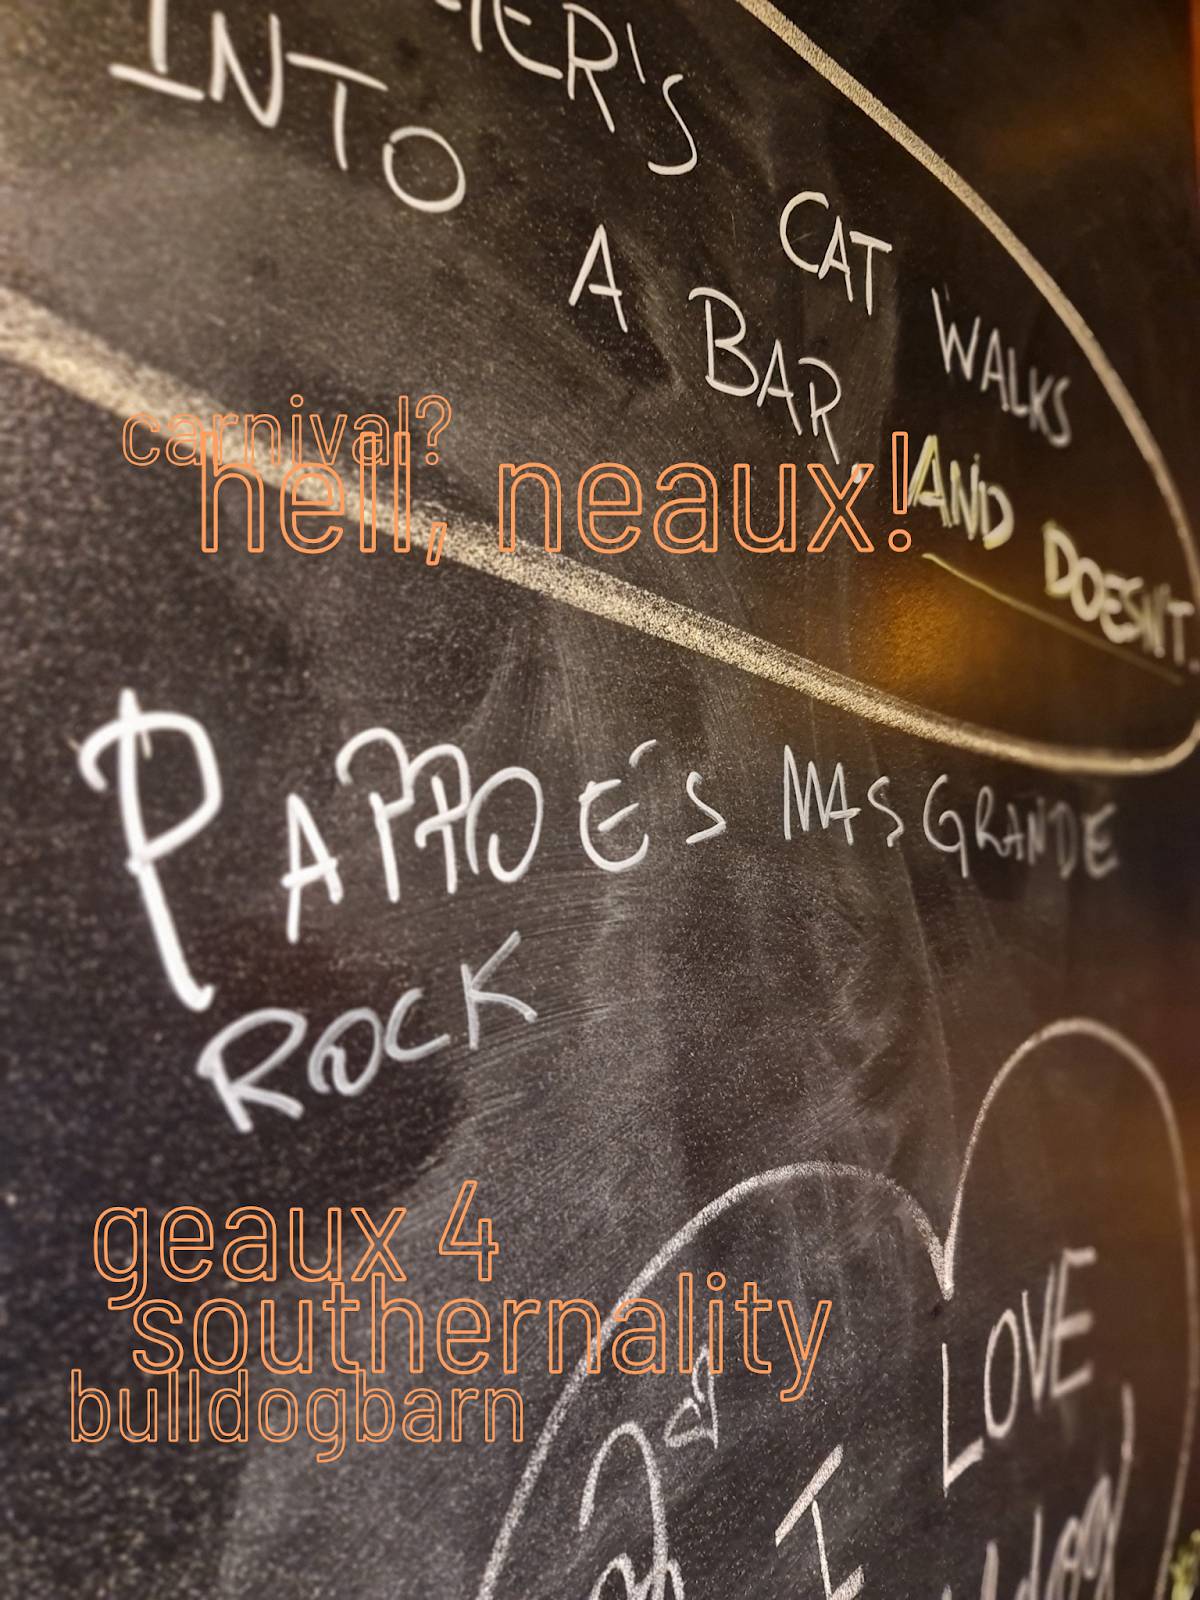 INTO A BAR,
CAT WALKS
AND DOESN'T
carnival?
hell, neaux!
PAPPOE'S MAS GRANDE
ROCK
geaux 4
southernality
bulldogbarn
I LOVE